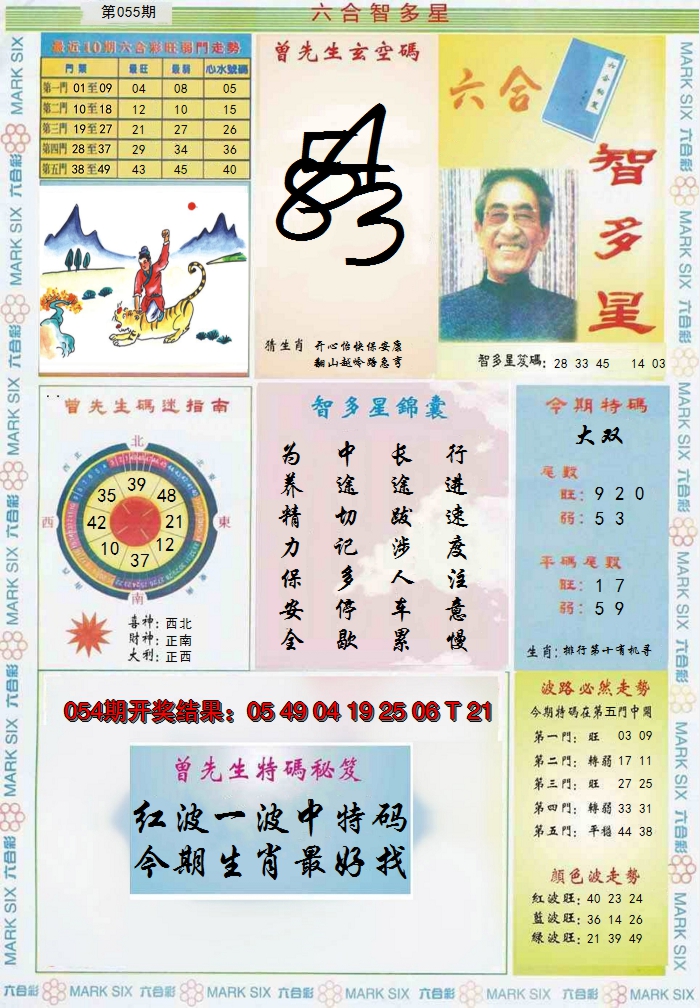 第055期
六合智多星
最近10期六合彩旺弱門走勢
門票 最旺 最弱 心水號碼
第一門 01至09 04 08 05
第二門 10至18 12 10 15
第三門 19至27 21 27 26
第四門 28至37 29 34 36
第五門 38至49 43 45 40
曾先生玄空碼
猜生肖 开心怡快保安康
翻山越岭路急亨
六合
智多星
智多星笈碼: 28 33 45 14 03
曾先生碼迷指南
北
西
東
南
39
48
21
12
37
10
42
35
喜神: 西北
財神: 正南
大利: 正西
智多星錦囊
行进速度注意慢
长途跋涉人车累
中途切记多停歇
为养精力保安全
今期特碼
大双
尾數
旺: 9 2 0
弱: 5 3
平碼尾數
旺: 1 7
弱: 5 9
生肖: 排行第十有机寻
054期开奖结果: 05 49 04 19 25 06 T 21
曾先生特碼秘笈
红波一波中特码
今期生肖最好找
波路必然走勢
今期特碼在第五門中開
第一門: 旺 03 09
第二門: 轉弱 17 11
第三門: 旺 27 25
第四門: 轉弱 33 31
第五門: 平穩 44 38
顏色波走勢
紅波旺: 40 23 24
藍波旺: 36 14 26
綠波旺: 21 39 49
六合彩 MARK SIX 六合彩 MARK SIX 六合彩 MARK SIX 六合彩 MARK SIX 六合彩